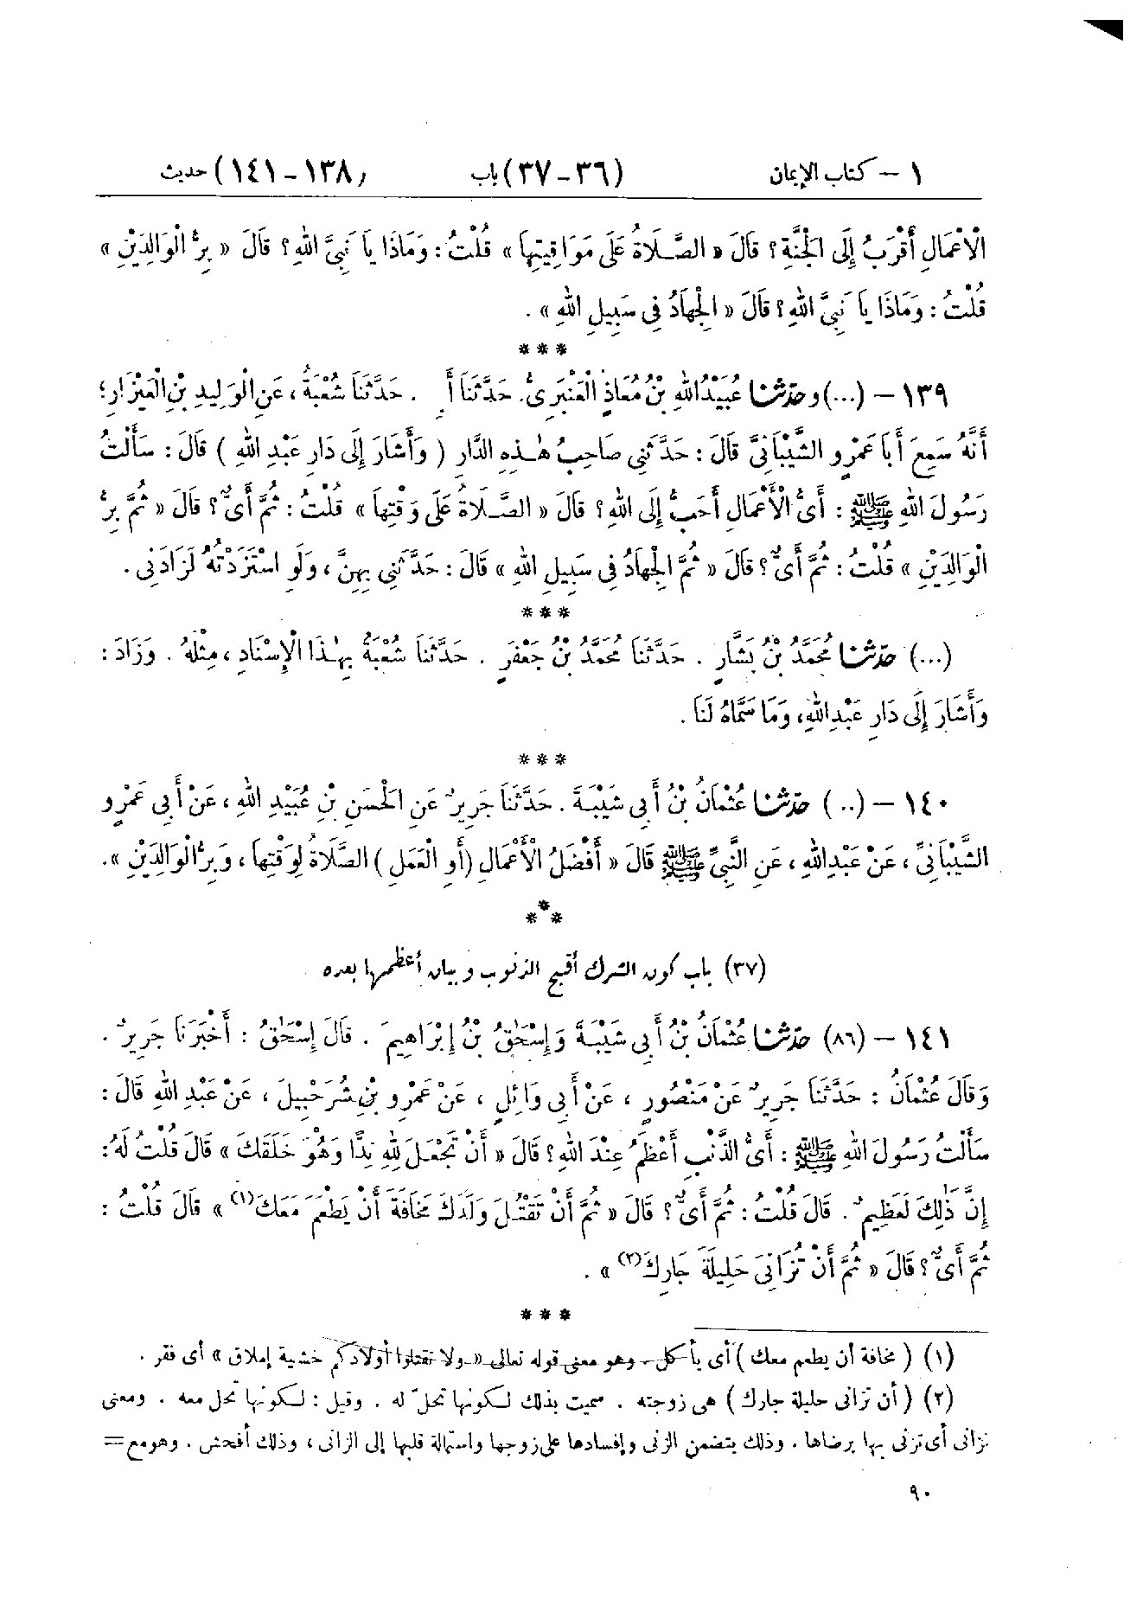 ١ – كتاب الإيمان (٣٦ – ٣٧) باب (١٣٨ – ١٤١) حديث
الْأَعْمَالِ أَقْرَبُ إِلَى الْجَنَّةِ؟ قَالَ « الصَّلَاةُ عَلَى مَوَاقِيتِهَا » قُلْتُ : وَمَاذَا يَا نَبِيَّ اللهِ؟ قَالَ « بِرُّ الْوَالِدَيْنِ »
قُلْتُ : وَمَاذَا يَا نَبِيَّ اللهِ؟ قَالَ « الْجِهَادُ فِي سَبِيلِ اللهِ » .
***
١٣٩ – (...) وحدّثنا عُبَيْدُاللهِ بْنُ مُعَاذٍ الْعَنْبَرِيُّ. حَدَّثَنَا أَ . حَدَّثَنَا شُعْبَةُ ، عَنِ الْوَلِيدِ بْنِ الْعَيْزَارِ ؛
أَنَّهُ سَمِعَ أَبَا عَمْرٍو الشَّيْبَانِيَّ قَالَ : حَدَّثَنِي صَاحِبُ هٰذِهِ الدَّارِ ( وَأَشَارَ إِلَى دَارِ عَبْدِ اللهِ ) قَالَ : سَأَلْتُ
رَسُولَ اللهِ ﷺ : أَيُّ الْأَعْمَالِ أَحَبُّ إِلَى اللهِ؟ قَالَ « الصَّلَاةُ عَلَى وَقْتِهَا » قُلْتُ : ثُمَّ أَيٌّ؟ قَالَ « ثُمَّ بِرُّ
الْوَالِدَيْنِ » قُلْتُ : ثُمَّ أَيٌّ؟ قَالَ « ثُمَّ الْجِهَادُ فِي سَبِيلِ اللهِ » قَالَ : حَدَّثَنِي بِهِنَّ ، وَلَوِ اسْتَزَدْتُهُ لَزَادَنِي .
***
(...) حدّثنا مُحَمَّدُ بْنُ بَشَّارٍ . حَدَّثَنَا مُحَمَّدُ بْنُ جَعْفَرٍ . حَدَّثَنَا شُعْبَةُ بِهٰذَا الْإِسْنَادِ ، مِثْلَهُ . وَزَادَ :
وَأَشَارَ إِلَى دَارِ عَبْدِاللهِ، وَمَا سَمَّاهُ لَنَا .
***
١٤٠ – (..) حدّثنا عُثْمَانُ بْنُ أَبِي شَيْبَةَ . حَدَّثَنَا جَرِيرٌ عَنِ الْحَسَنِ بْنِ عُبَيْدِ اللهِ ، عَنْ أَبِي عَمْرٍو
الشَّيْبَانِيِّ ، عَنْ عَبْدِاللهِ ، عَنِ النَّبِيِّ ﷺ قَالَ « أَفْضَلُ الْأَعْمَالِ (أَوِ الْعَمَلِ ) الصَّلَاةُ لِوَقْتِهَا ، وَبِرُّ الْوَالِدَيْنِ ».
***
(٣٧) باب كون الشرك أقبح الذنوب وبيان أعظمها بعده
١٤١ – (٨٦) حدّثنا عُثْمَانُ بْنُ أَبِي شَيْبَةَ وَإِسْحَاقُ بْنُ إِبْرَاهِيمَ . قَالَ إِسْحَاقُ : أَخْبَرَنَا جَرِيرٌ .
وَقَالَ عُثْمَانُ : حَدَّثَنَا جَرِيرٌ عَنْ مَنْصُورٍ ، عَنْ أَبِي وَائِلٍ ، عَنْ عَمْرِو بْنِ شُرَحْبِيلَ ، عَنْ عَبْدِ اللهِ قَالَ :
سَأَلْتُ رَسُولَ اللهِ ﷺ : أَيُّ الذَّنْبِ أَعْظَمُ عِنْدَ اللهِ؟ قَالَ « أَنْ تَجْعَلَ لِلهِ نِدًّا وَهُوَ خَلَقَكَ » قَالَ قُلْتُ لَهُ :
إِنَّ ذٰلِكَ لَعَظِيمٌ . قَالَ قُلْتُ : ثُمَّ أَيٌّ؟ قَالَ « ثُمَّ أَنْ تَقْتُلَ وَلَدَكَ مَخَافَةَ أَنْ يَطْعَمَ مَعَكَ(١) » قَالَ قُلْتُ :
ثُمَّ أَيٌّ؟ قَالَ « ثُمَّ أَنْ تُزَانِيَ حَلِيلَةَ جَارِكَ(٢) » .
***
(١) ( مخافة أن يطعم معك ) أى يأكل . وهو معنى قوله تعالى « ولا تقتلوا أولادكم خشية إملاق » أى فقر .
(٢) ( أن تزانى حليلة جارك ) هى زوجته . سميت بذلك لكونها تحلّ له . وقيل : لكونها تحل معه . ومعنى
تزانى أى تزنى بها برضاها . وذلك يتضمن الزنى وإفسادها على زوجها واستمالة قلبها إلى الزانى ، وذلك أفحش . وهو مع =
٩٠